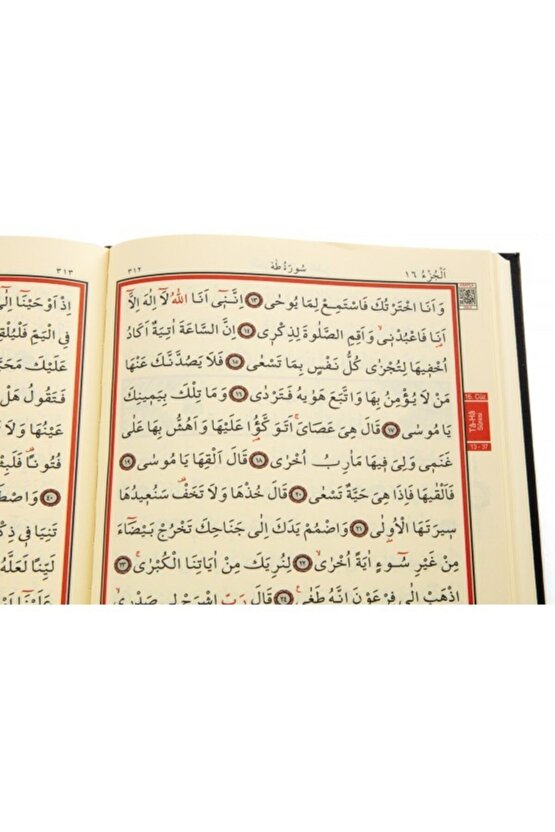 اَلْجُزْءُ ١٦
سُورَةُ طٰهٰ
٣١٢
وَاَنَا اخْتَرْتُكَ فَاسْتَمِعْ لِمَا يُوحٰى ١٣ اِنَّنٓى اَنَا اللّٰهُ لَٓا اِلٰهَ اِلَّٓا
اَنَا فَاعْبُدْنٖى وَاَقِمِ الصَّلٰوةَ لِذِكْرٖى ١٤ اِنَّ السَّاعَةَ اٰتِيَةٌ اَكَادُ
اُخْفٖيهَا لِتُجْزٰى كُلُّ نَفْسٍ بِمَا تَسْعٰى ١٥ فَلَا يَصُدَّنَّكَ عَنْهَا
مَنْ لَا يُؤْمِنُ بِهَا وَاتَّبَعَ هَوٰيهُ فَتَرْدٰى ١٦ وَمَا تِلْكَ بِيَمٖينِكَ
يَا مُوسٰى ١٧ قَالَ هِىَ عَصَاىَ اَتَوَكَّؤُا عَلَيْهَا وَاَهُشُّ بِهَا عَلٰى
غَنَمٖى وَلِىَ فٖيهَا مَاٰرِبُ اُخْرٰى ١٨ قَالَ اَلْقِهَا يَا مُوسٰى ١٩
فَاَلْقٰيهَا فَاِذَا هِىَ حَيَّةٌ تَسْعٰى ٢٠ قَالَ خُذْهَا وَلَا تَخَفْ سَنُعٖيدُهَا
سٖيرَتَهَا الْاُو۫لٰى ٢١ وَاضْمُمْ يَدَكَ اِلٰى جَنَاحِكَ تَخْرُجْ بَيْضَٓاءَ
مِنْ غَيْرِ سُٓوءٍ اٰيَةً اُخْرٰى ٢٢ لِنُرِيَكَ مِنْ اٰيَاتِنَا الْكُبْرٰى ٢٣
اِذْهَبْ اِلٰى فِرْعَوْنَ اِنَّهُ طَغٰى ٢٤ قَالَ رَبِّ اشْرَحْ لٖى صَدْرٖى
16. Cüz
Tâ-Hâ
Sûresi
13 - 37
٣١٣
اِذْ اَوْحَيْنَٓا اِلٰٓى
فِى الْيَمِّ فَلْيُلْقِ
عَلَيْكَ مَحَبَّ
فَتَقُولُ هَلْ
عَيْنُهَا وَلَا
فُتُونًا فَلَبِثْ
٤٠ وَاصْطَ
تَنِيَا فٖى ذِكْ
لَيِّنًا لَعَلَّهُ
عَلَيْنَٓا